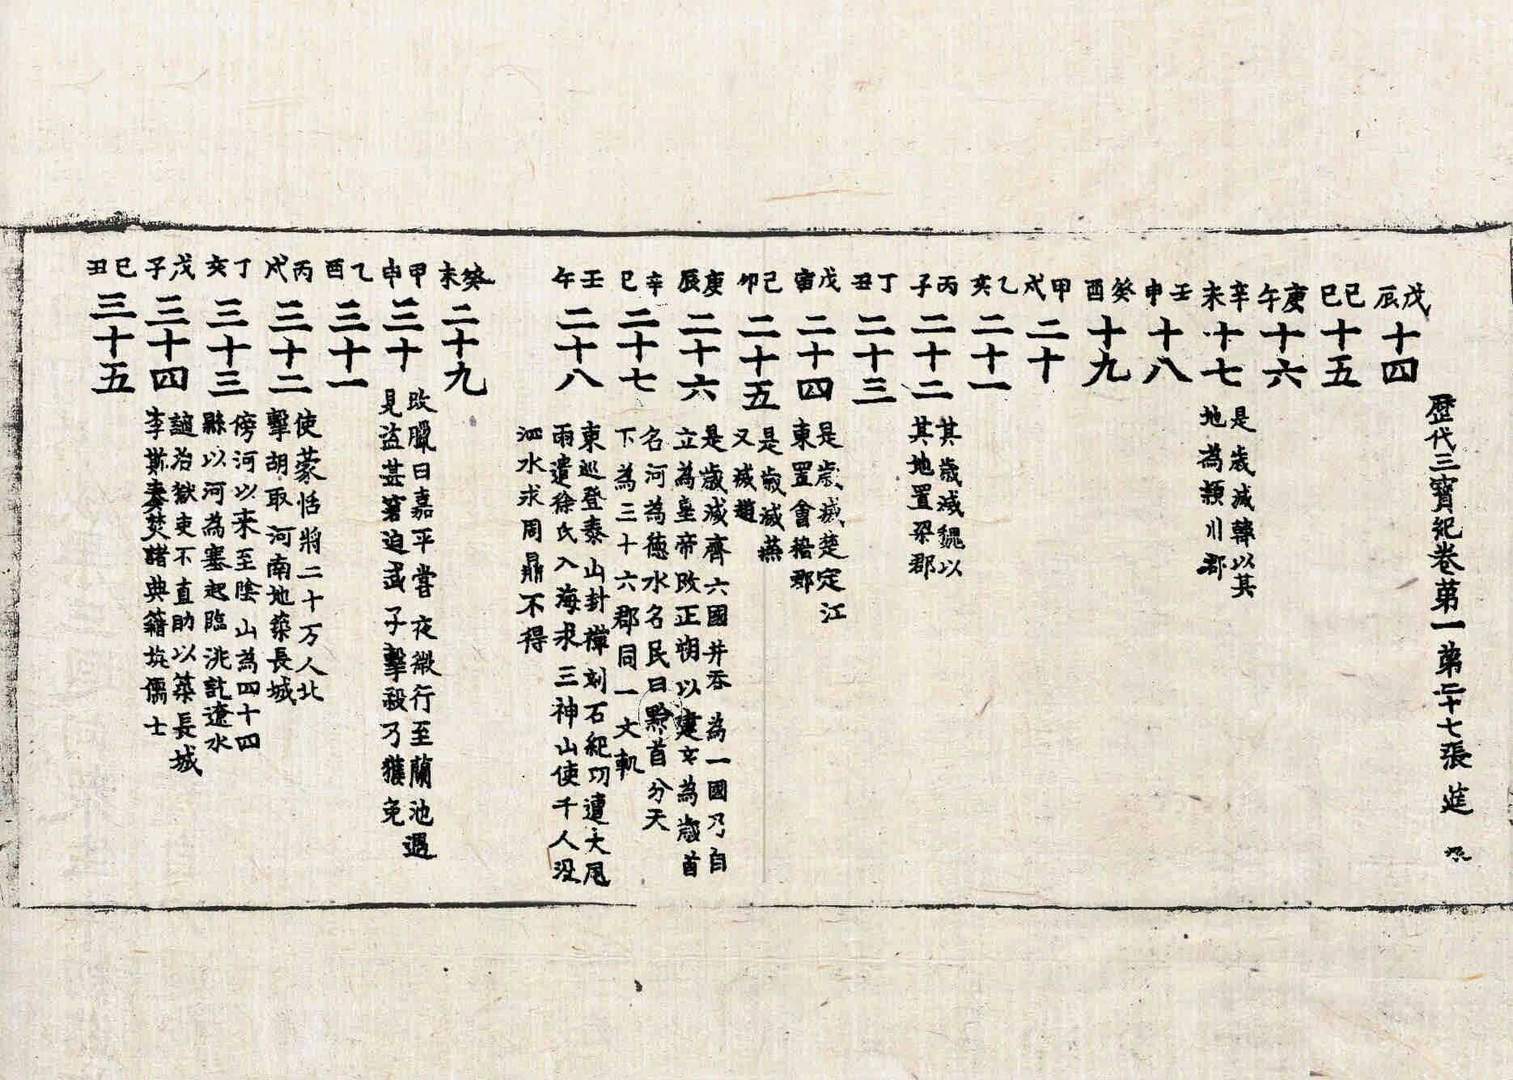 歷代三寶紀卷第一 第二十七張
戊辰 十四
己巳 十五
庚午 十六
辛未 十七
是歲滅韓以其
地為潁川郡
壬申 十八
癸酉 十九
甲戌 二十
乙亥 二十一
丙子 二十二
其歲滅魏以
其地置梁郡
丁丑 二十三
戊寅 二十四
是歲滅楚定江
東置會稽郡
己卯 二十五
是歲滅燕
又滅趙
庚辰 二十六
是歲滅齊六國并吞為一國乃自
立為皇帝改正朔以建亥為歲首
辛巳 二十七
名河為德水名民曰黔首分天
下為三十六郡同一文軌
壬午 二十八
東巡登泰山封禪刻石紀功遭大風
雨遣徐氏入海求三神山使千人沒
泗水求周鼎不得
癸未 二十九
甲申 三十
改臘曰嘉平嘗夜微行至蘭池遇
見盜甚窘迫武子擊殺乃獲免
乙酉 三十一
丙戌 三十二
使蒙恬將二十万人北
擊胡取河南地築長城
丁亥 三十三
傍河以來至陰山為四十四
縣以河為塞起臨洮訖遼水
戊子 三十四
謫治獄吏不直助以築長城
李斯奏焚諸典籍坑儒士
己丑 三十五